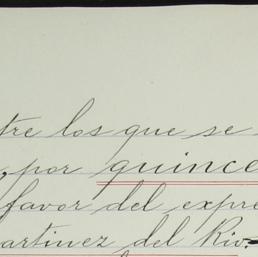 tre los que se
, por quince
favor del expre
artinez del Rio.